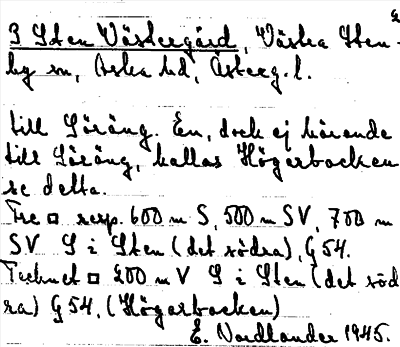 3 Sten Västergård, Västra Sten-
by sn, Aska hd, Österg. l.
till Söräng. En, dock ej hörande
till Söräng, kallas Högerbacken
se detta.
Tre □ resp. 600 m S, 500 m SV, 700 m
SV S i Sten (det södra), G 54.
Tecknet □ 200 m V S i Sten (det söd
ra) G 54. (Högerbacken)
E. Nordlander 1945.